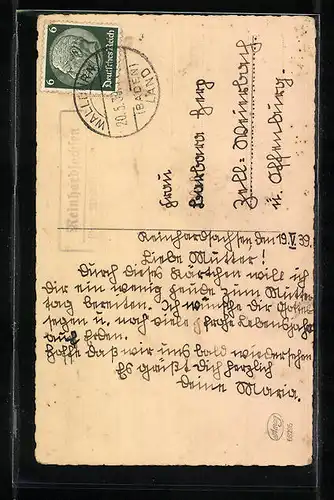 6
Deutsches Reich
6
WALLDÜRN
20.5.39
(BADEN)
LAND
Reinhardsachsen
Frau
Barbara Herp
Zell-Weierbach.
u. Offenburg.
Reinhardsachsen den 19.V.39.
Liebe Mutter!
Durch dieses Kärtchen will ich
dir ein wenig Freude zum Mutter
tag bereiten. Ich wünsche dir Gottes
segen u. noch viele frohe Lebensjahre
auf Erden.
Hoffe daß wir uns bald wiedersehen
Es grüßt dich herzlich
deine Maria.